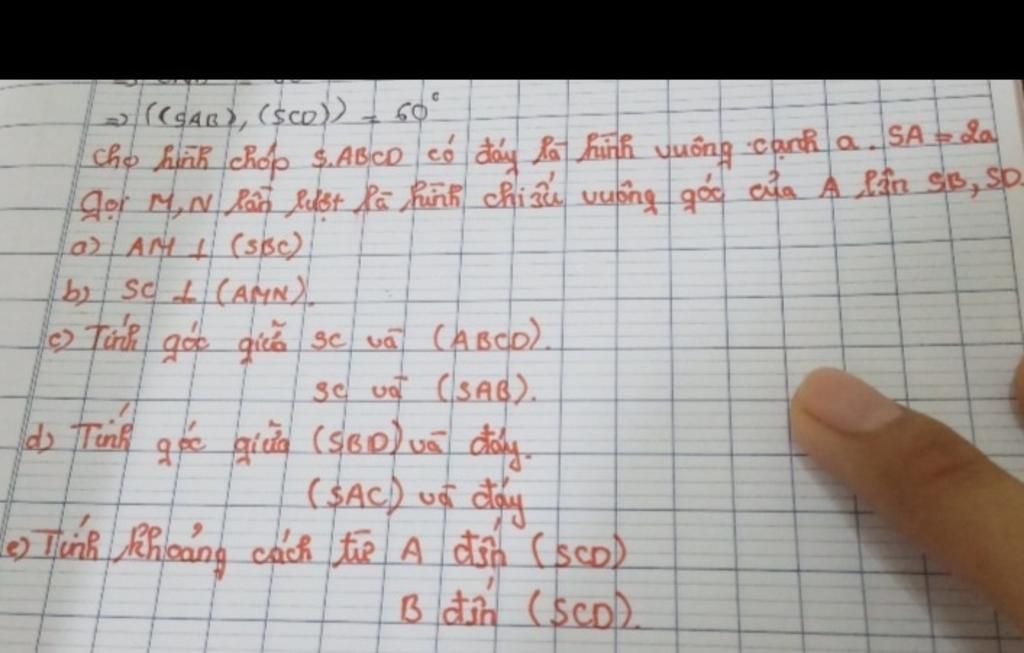 => ((SAB), (SCD)) = 60°
Cho hình chóp S.ABCD có đáy là hình vuông cạnh a. SA = 2a
Gọi M, N lần lượt là hình chiếu vuông góc của A lên SB, SD.
a) AM ⊥ (SBC)
b) SC ⊥ (AMN).
c) Tính góc giữa SC và (ABCD).
SC và (SAB).
d) Tính góc giữa (SBD) và đáy.
(SAC) và đáy
e) Tính khoảng cách từ A đến (SCD)
B đến (SCD).